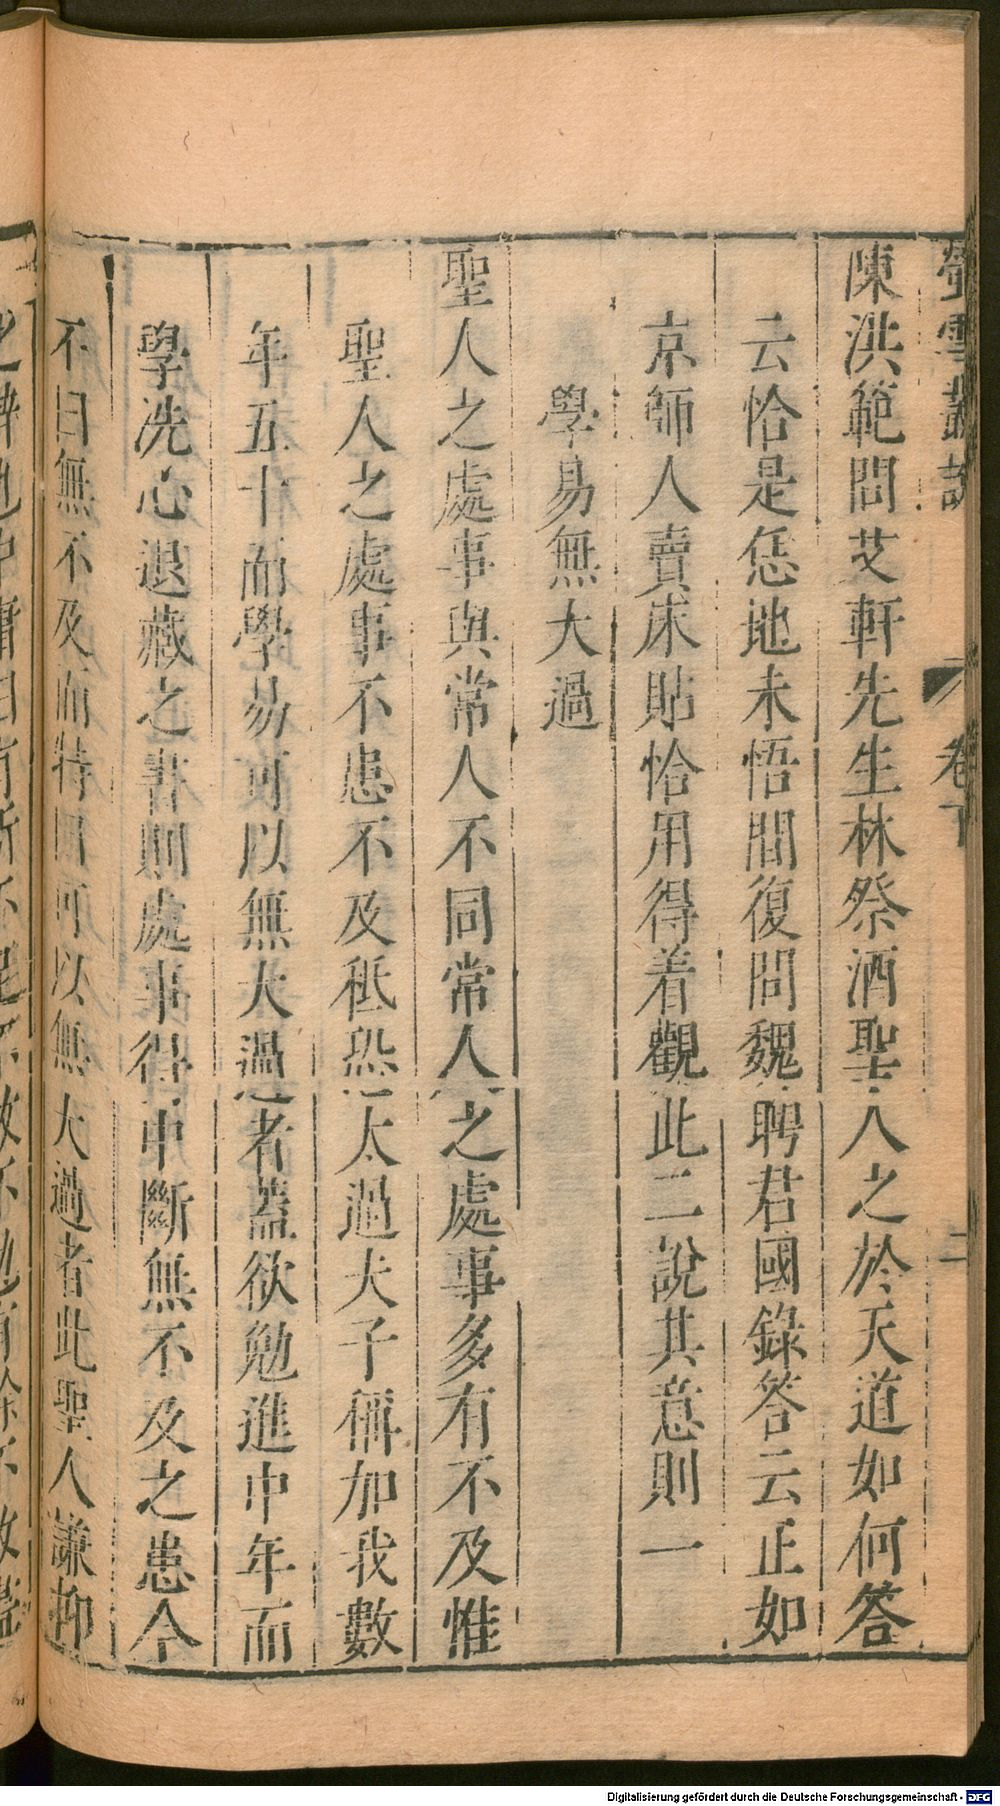 螢雪叢說 卷下 二
陳洪範問艾軒先生林祭酒聖人之於天道如何答
云恰是恁地未悟間復問魏聘君國錄答云正如
京師人賣床貼恰用得着觀此二說其意則一
學易無大過
聖人之處事與常人不同常人之處事多有不及惟
聖人之處事不患不及秪恐太過夫子稱加我數
年五十而學易可以無大過者蓋欲勉進中年而
學洗心退藏之書則處事得中斷無不及之患今
不曰無不及而特曰可以無大過者此聖人謙抑
Digitalisierung gefördert durch die Deutsche Forschungsgemeinschaft - DFG